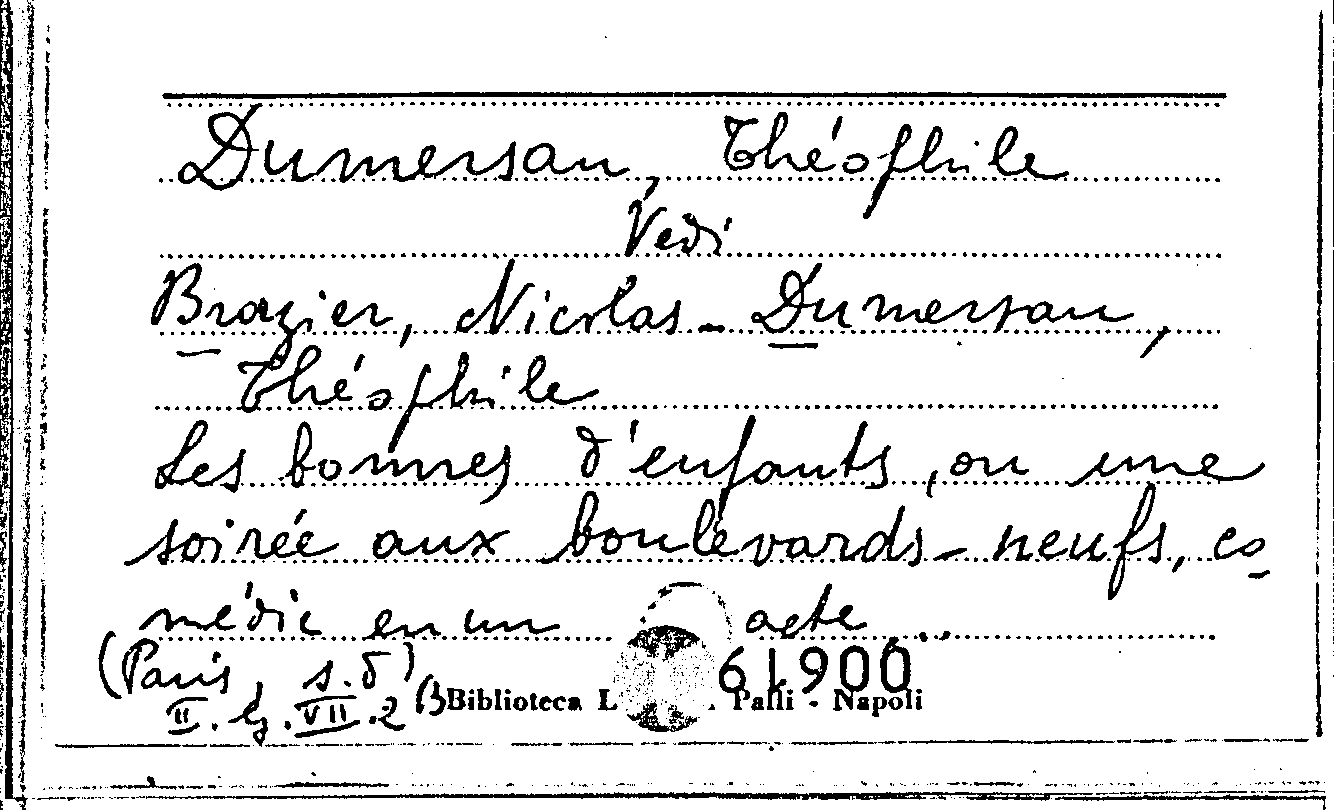 Dumersan, Théophile
Vedi
Brazier, Nicolas - Dumersan,
Théophile
Les bonnes d'enfants, ou une
soirée aux boulevards-neufs, co-
médie en un acte...
(Paris, s.d)
61900
II. VII.2(3
Biblioteca L Palli - Napoli